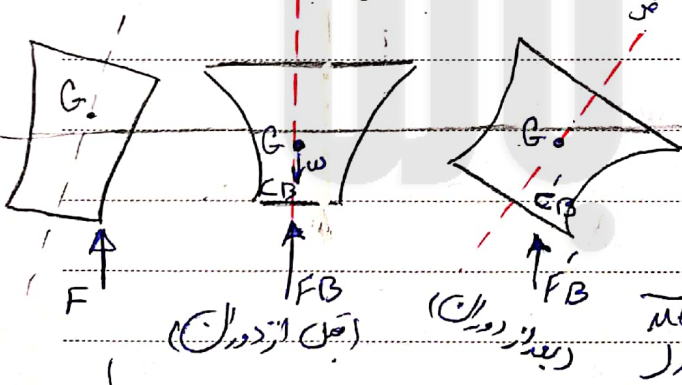 G
F
G
W
CB
FB
(قبل از دوران)
G
CB
FB
(بعد از دوران)